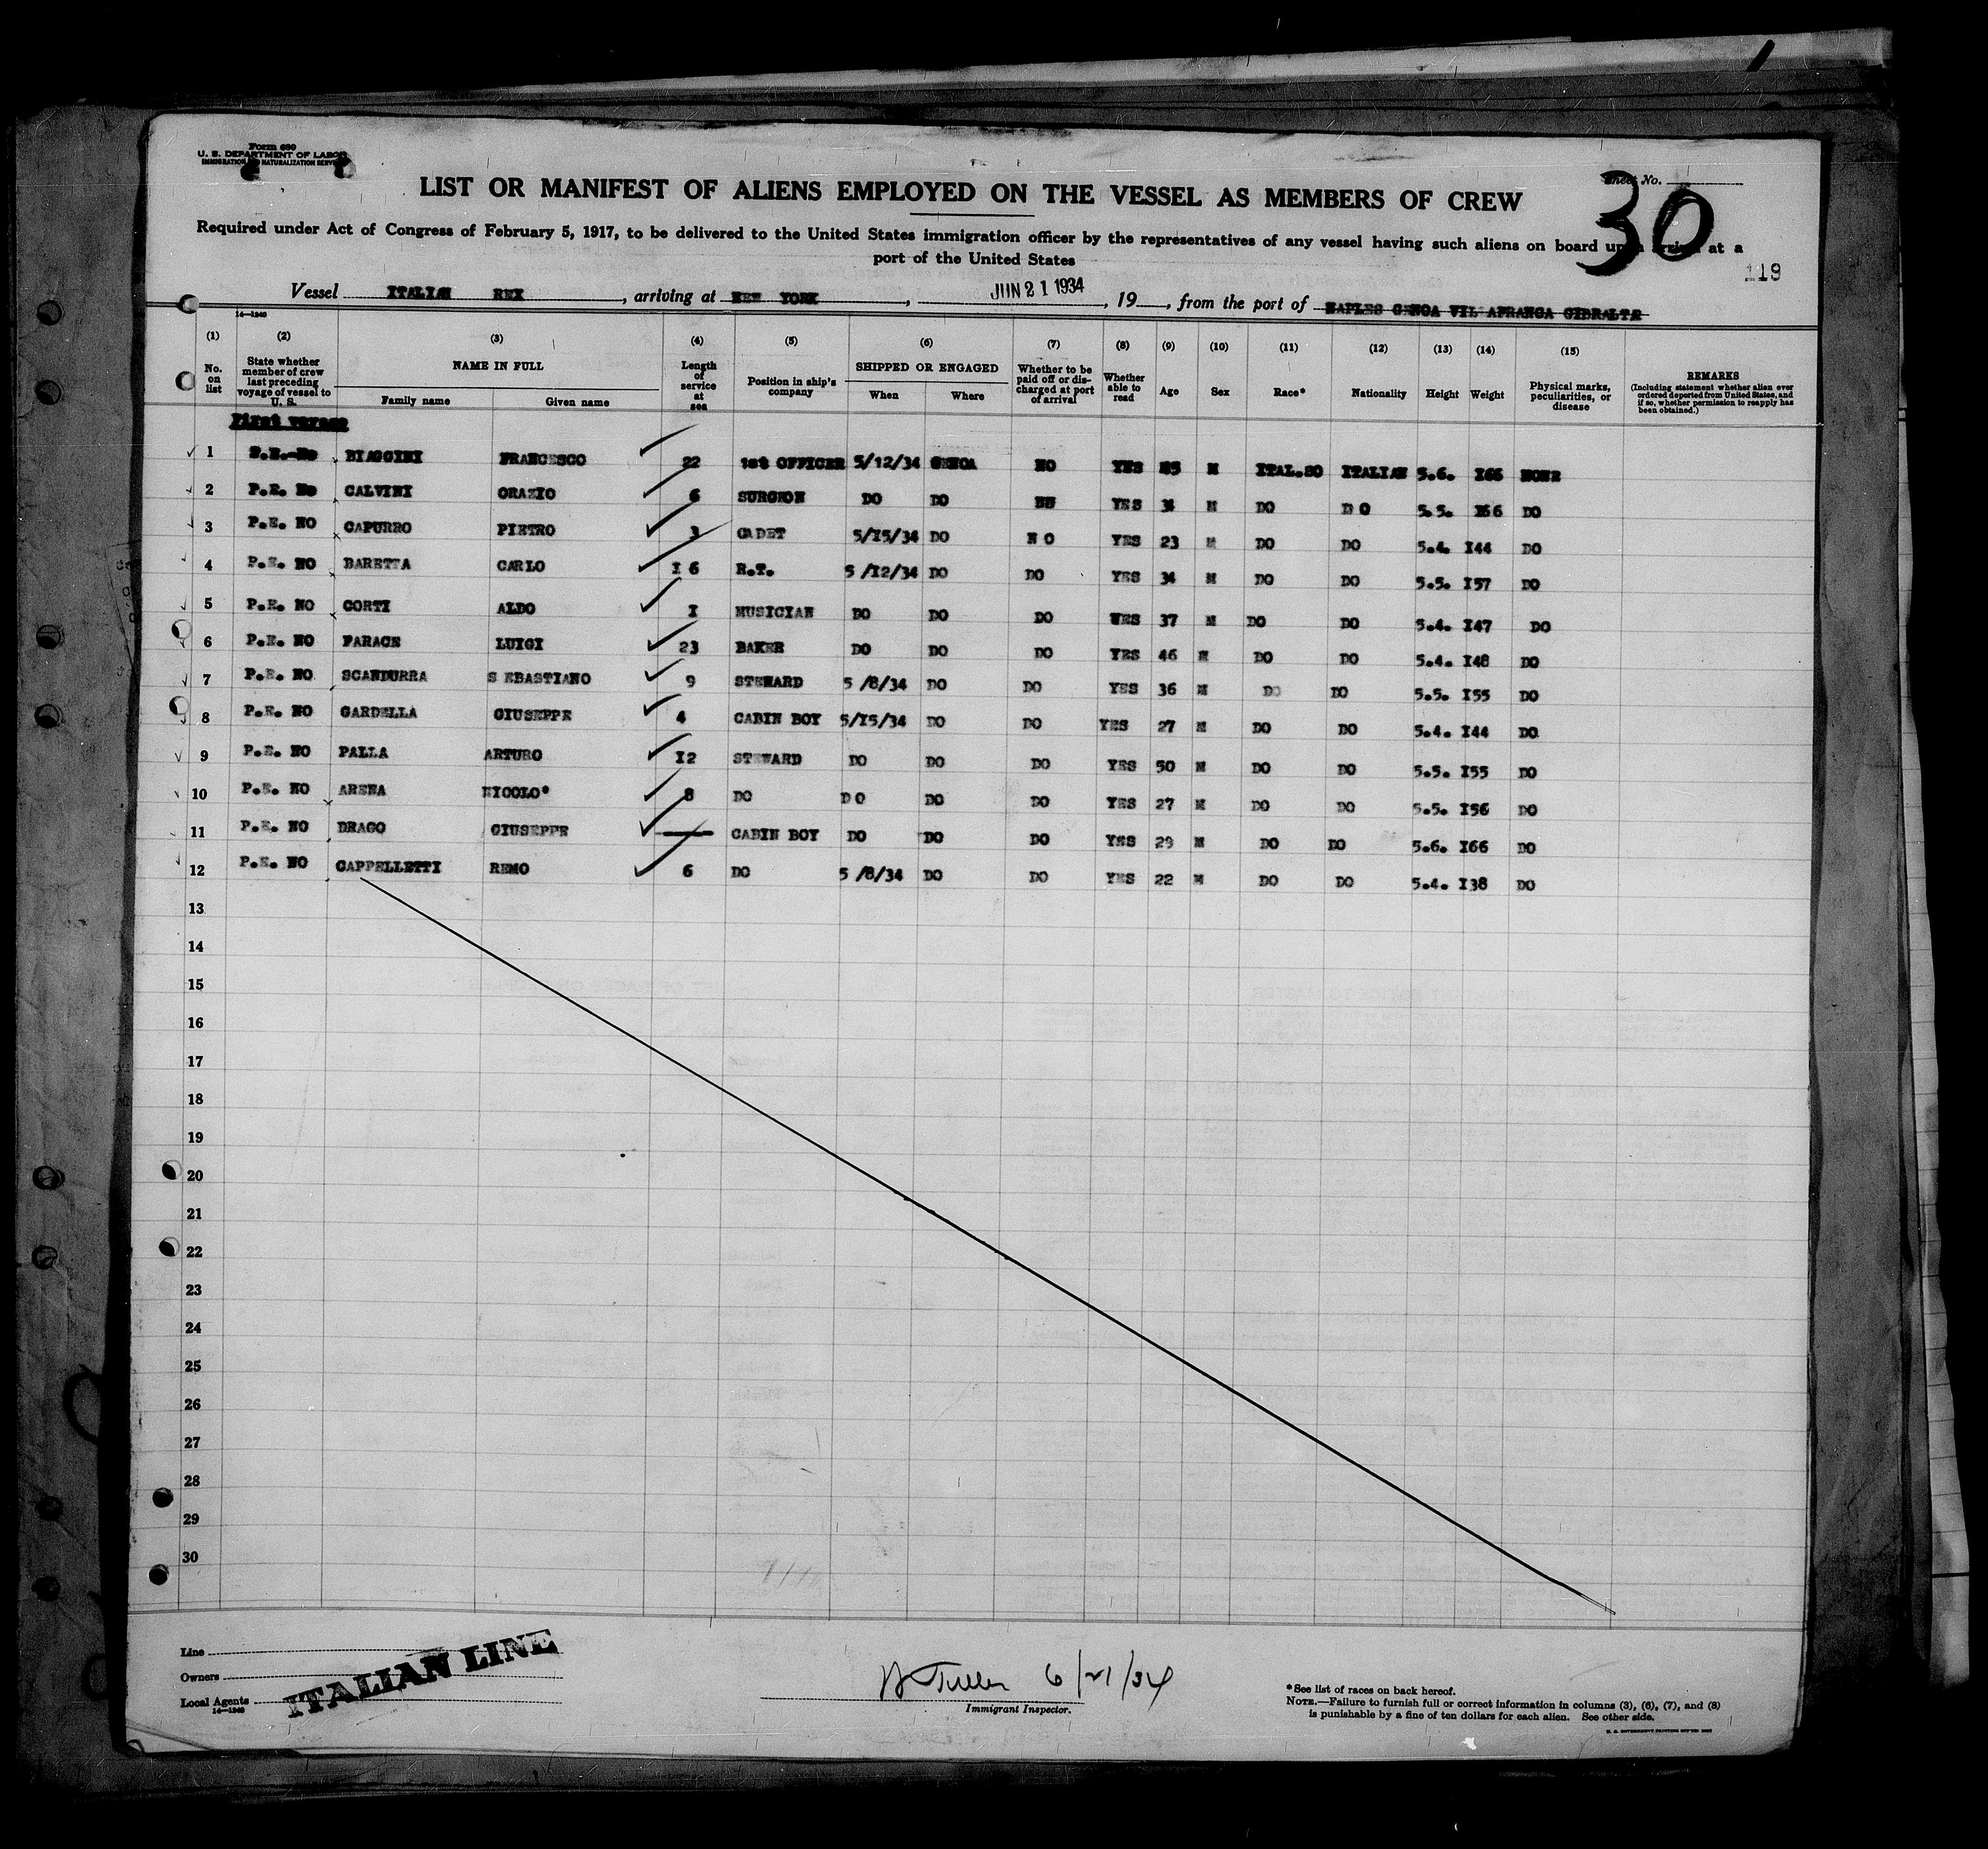 Form 680
U. S. DEPARTMENT OF LABOR
IMMIGRATION AND NATURALIZATION SERVICE
Sheet No.
30
LIST OR MANIFEST OF ALIENS EMPLOYED ON THE VESSEL AS MEMBERS OF CREW
Required under Act of Congress of February 5, 1917, to be delivered to the United States immigration officer by the representatives of any vessel having such aliens on board upon arrival at a
port of the United States
119
Vessel ITALIAN REX, arriving at NEW YORK, JUN 21 1934, 19, from the port of NAPLES GENOA VILLAFRANCA GIBRALTR
14—1240
(1) (2) (3) (4) (5) (6) (7) (8) (9) (10) (11) (12) (13) (14) (15)
No. on list State whether member of crew last preceding voyage of vessel to U. S. NAME IN FULL Family name Given name Length of service at sea Position in ship's company SHIPPED OR ENGAGED When Where Whether to be paid off or discharged at port of arrival Whether able to read Age Sex Race* Nationality Height Weight Physical marks, peculiarities, or disease REMARKS (Including statement whether alien ever ordered deported from United States, and if so, whether permission to reapply has been obtained.)
First voyage
1 BIAGGINI FRANCESCO 22 1st OFFICER 5/12/34 GENOA NO YES 45 M ITAL.SO ITALIAN 5.6. I66 NONE
2 P.E. No CALVINI ORAZIO 6 SURGEON DO DO YES M DO D O 5.5. I66 DO
3 P.E. NO CAPURRO PIETRO 3 CADET 5/I5/34 DO N O YES 23 M DO DO 5.4. I44 DO
4 P.E. NO BARETTA CARLO I 6 R.T. 5 /I2/34 DO DO YES 34 M DO DO 5.5. I57 DO
5 P.E. NO CORTI ALDO I MUSICIAN DO DO DO YES 37 M DO DO 5.4. I47 DO
6 P.E. NO FARACE LUIGI 23 BAKER DO DO DO YES 46 M DO DO 5.4. I48 DO
7 P.E. NO SCANDURRA S EBASTIANO 9 STEWARD 5 /8/34 DO DO YES 36 M DO DO 5.5. I55 DO
8 P.E. NO GARDELLA GIUSEPPE 4 CABIN BOY 5/I5/34 DO DO YES 27 M DO DO 5.4. I44 DO
9 P.E. NO PALLA ARTURO I2 STEWARD DO DO DO YES 50 M DO DO 5.5. I55 DO
10 P.E. NO ARENA NICOLO* 8 DO D O DO DO YES 27 M DO DO 5.5. I56 DO
11 P.E. NO DRAGO GIUSEPPE CABIN BOY DO DO DO YES 29 M DO DO 5.6. I66 DO
12 P.E. NO CAPPELLETTI REMO 6 DO 5 /8/34 DO DO YES 22 M DO DO 5.4. I38 DO
13
14
15
16
17
18
19
20
21
22
23
24
25
26
27
28
29
30
Line
Owners
Local Agents
14—1240
ITALIAN LINE
6/21/34
Immigrant Inspector.
*See list of races on back hereof.
NOTE.—Failure to furnish full or correct information in columns (3), (6), (7), and (8)
is punishable by a fine of ten dollars for each alien. See other side.